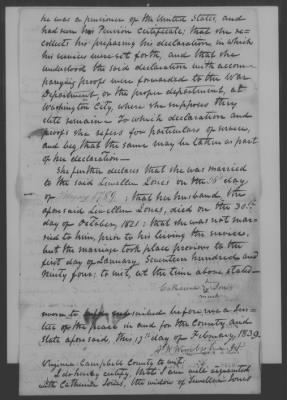 he was a pensioner of the United States, and
had seen his Pension Certificate; that she re-
collects his preparing his declaration, in which
his services were set forth, and that she
understood the said declaration with accom-
panying proofs were forwarded to the War
Department, or the proper department, at
Washington City, where she supposes they
still remain - To which declaration and
proofs she refers for particulars of service,
and beg that the same may be taken as part
of her declaration -
She further declares that she was married
to the said Lewellen Jones on the day
of 1789; that her husband, the
aforesaid Lewellen Jones, died on the 30th
day of October, 1821; that she was not mar-
ried to him, prior to his leaving the service,
but the marriage took place previous to the
first day of January, Seventeen hundred and
Ninety four; to wit, at the time above stated -
Catherine Jones
mark
sworn to subscribed before me a Jus-
tice of the peace in and for the County and
State aforesaid, this 13th day of February, 1839.
Virginia Campbell County to wit:
I do hereby certify, that I am well acquainted
with Catherine Jones, the widow of Lewellen Jones